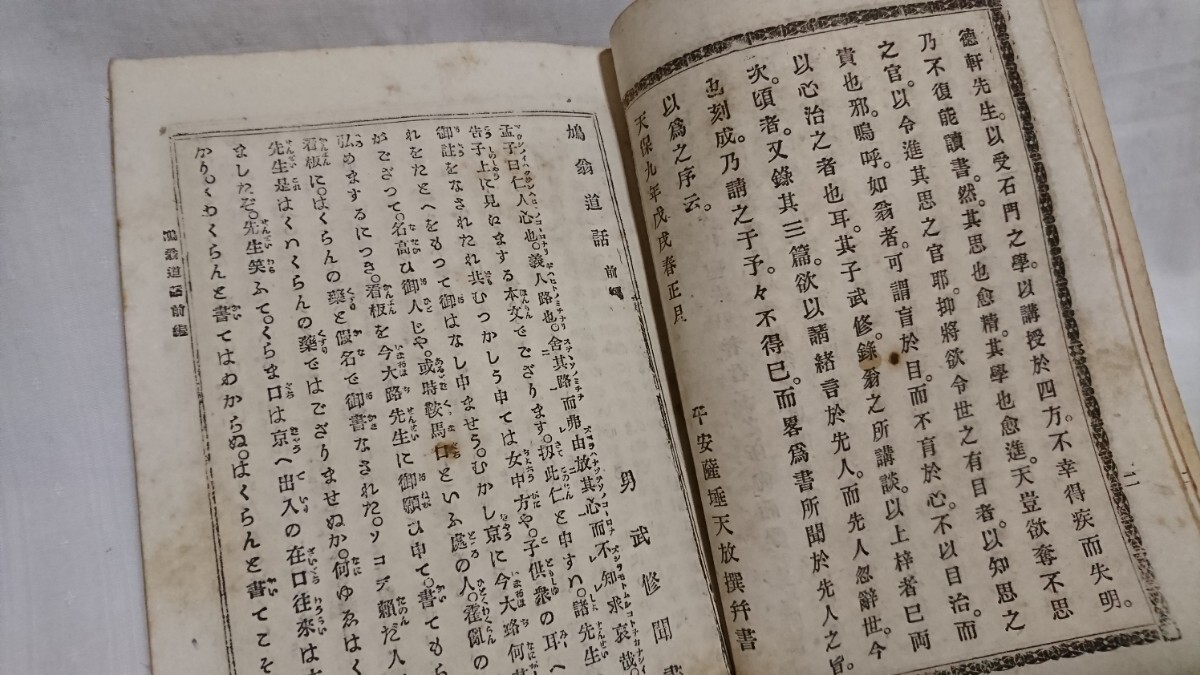 德軒先生。以受石門之學。以講授於四方。不幸得疾而失明。
乃不復能讀書。然。其思也愈精。其學也愈進。天豈欲奪不思
之官。以令進其思之官耶。抑將欲令世之有目者。以知思之
貴也邪。嗚呼。如翁者。可謂盲於目。而不盲於心。不以目治。而
以心治之者也耳。其子武修。錄翁之所講談。以上梓者已兩
次。頃者。又錄其三篇。欲以請緒言於先人。而先人忽辭世。今
也刻成。乃請之于予。々不得已。而畧爲書所聞於先人之旨。
以爲之序云。
天保九年戊戌春正月
平安薩埵天放撰幷書
二
鳩翁道話 前編
男 武修聞書
孟子曰仁人心也。義人路也。舍其路而弗由放其心而不知求哀哉。
告子上に見にまする本文でござります。扨此仁と申すハ。諸先生
御註をなされたれ共むつかしう申ては女中方や。子供衆の耳へ
れをたとへをもつて御はなし申ませう。むかし京に今大路何某
がござつて。名高ひ御人じや。或時鞍馬口といふ處の人。霍亂の
弘めまするにつき。看板を今大路先生に御願ひ申て。書てもら
看板に。はくらんの藥と假名で御書なされた。ソコデ賴だ人
先生是はくハくらんの藥ではござりませぬか。何ゆゑはく
ましたぞ。先生笑ふて。くらま口は京へ出入の在口往來は木
かり。くわくらんと書てはわからぬ。はくらんと書てこそ
鳩翁道話前編